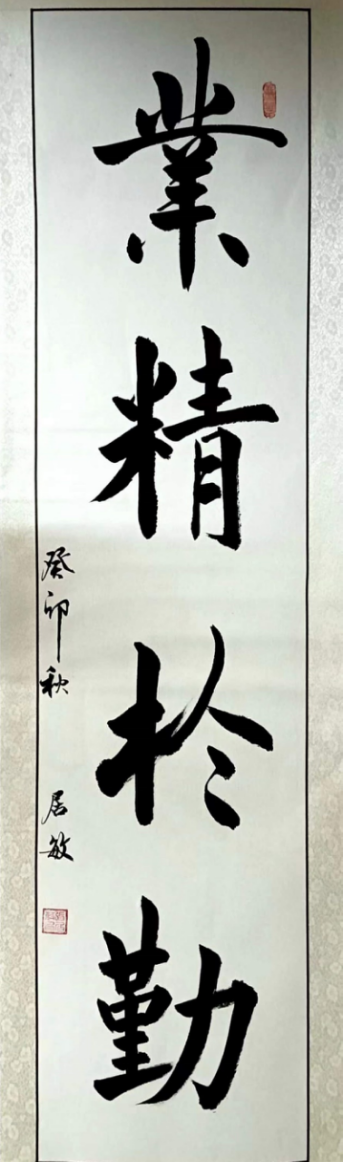 業精於勤
癸卯秋 居敏